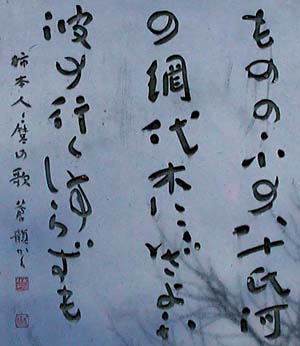 もののふの八十氏河
の網代木にいざよふ
波の行く降しらずも
柿本人麿の歌 蒼顔かく